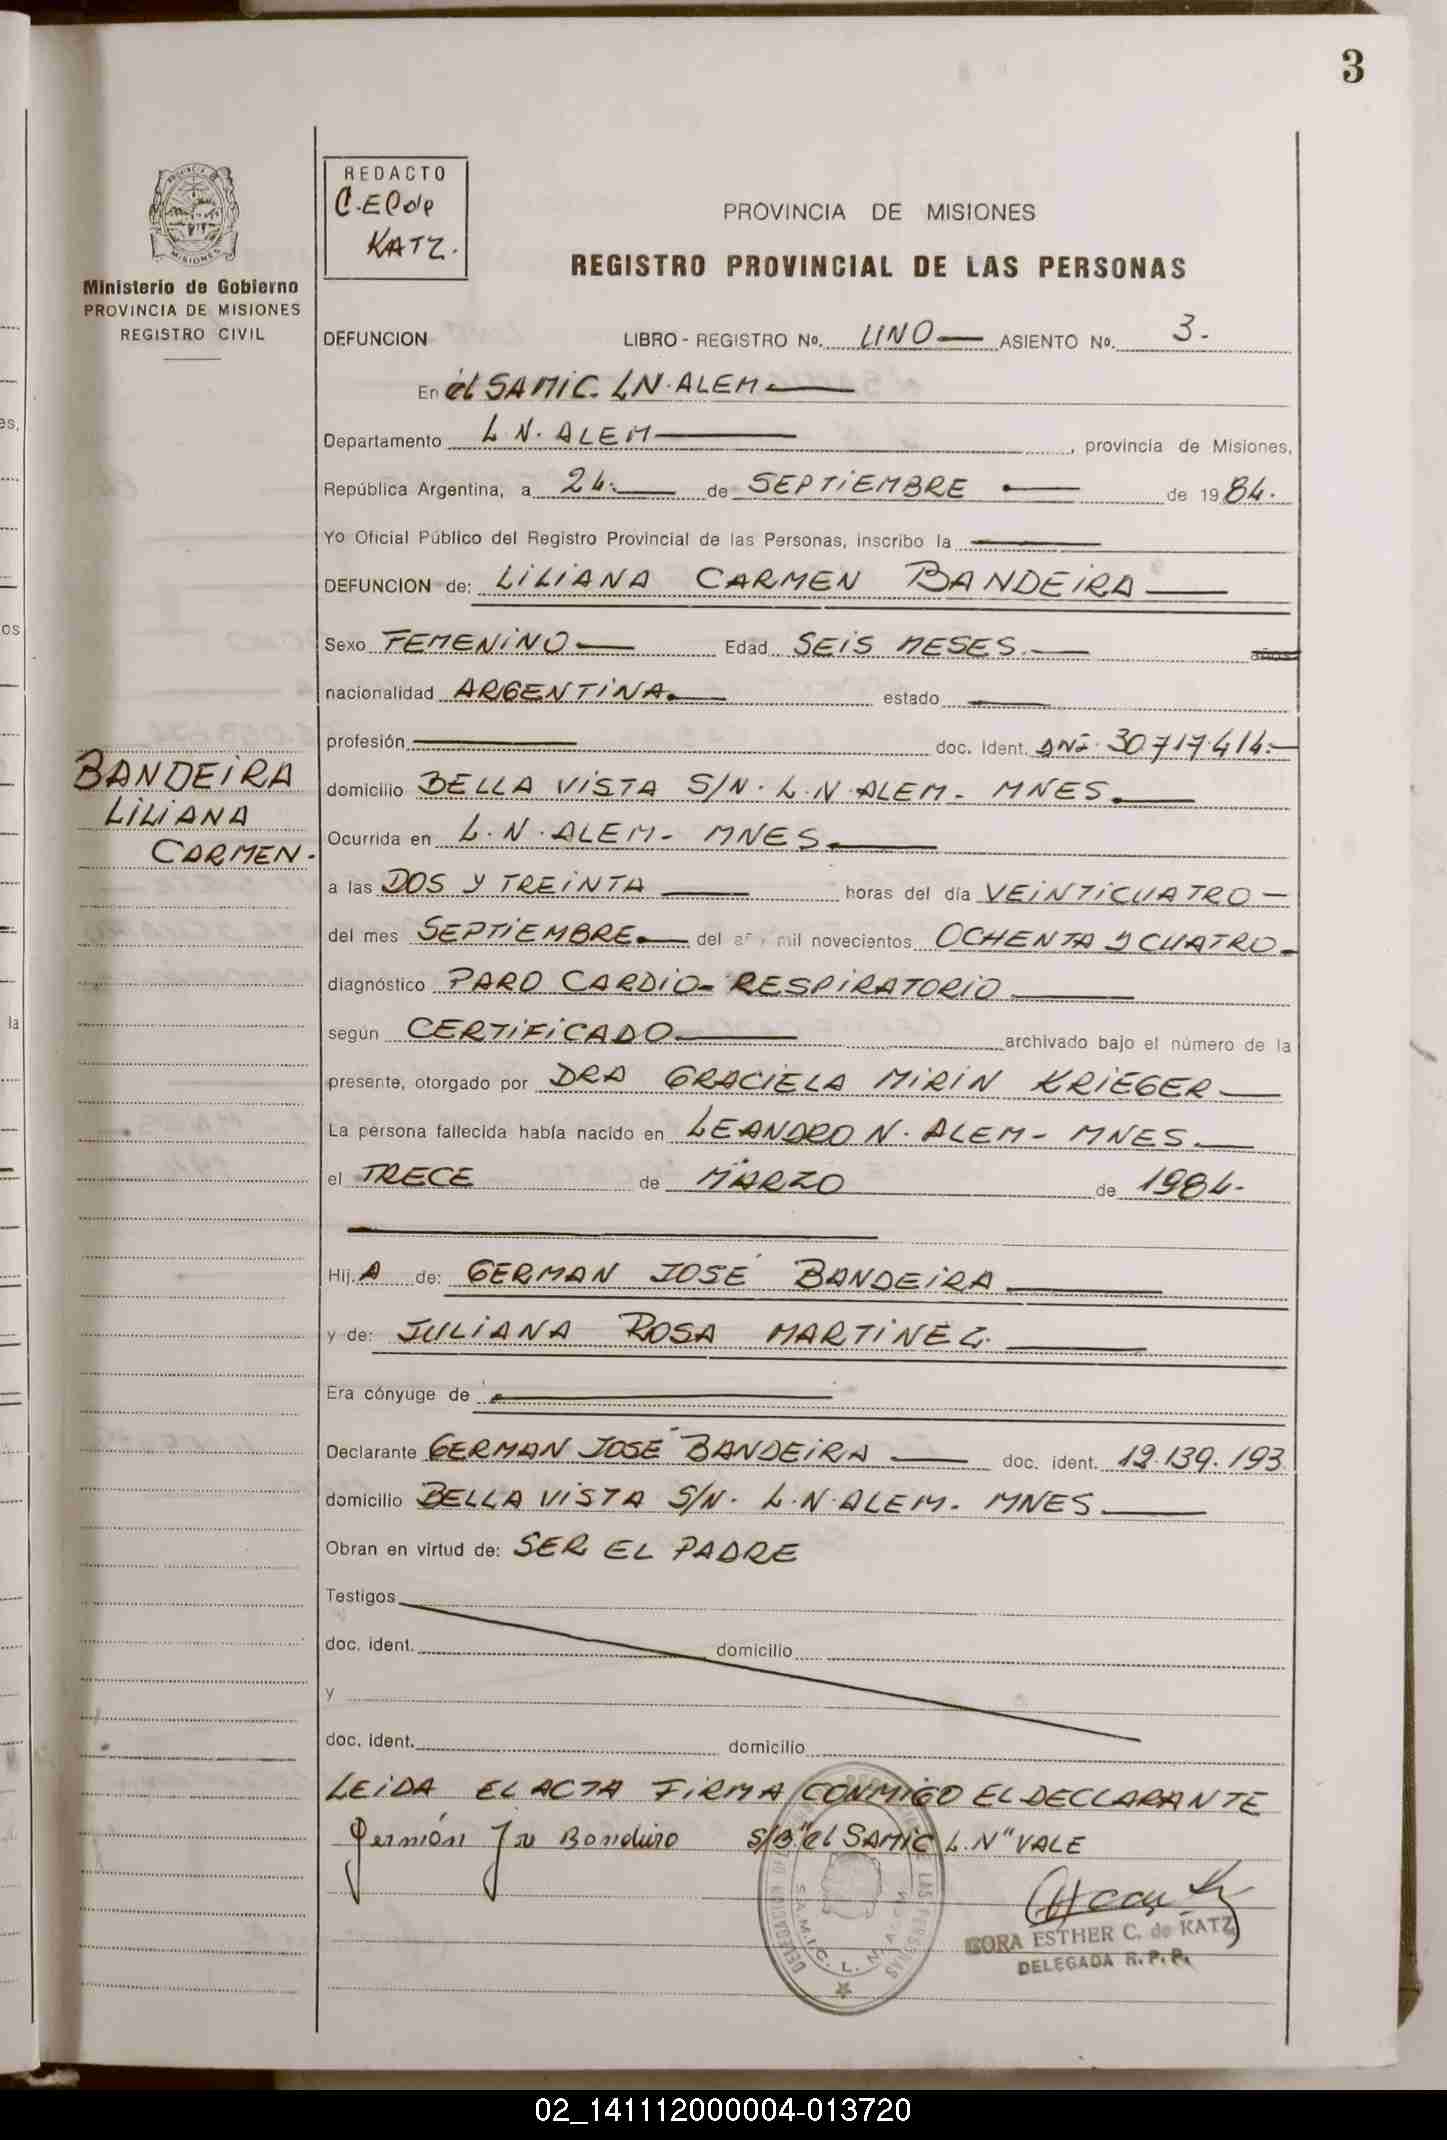 3
REDACTO
C.EC de
KATZ.
PROVINCIA DE MISIONES
REGISTRO PROVINCIAL DE LAS PERSONAS
MISIONES
Ministerio de Gobierno
PROVINCIA DE MISIONES
REGISTRO CIVIL
DEFUNCION LIBRO - REGISTRO No. UNO ASIENTO No. 3.
En el SAMIC. L N. ALEM
Departamento L. N. ALEM, provincia de Misiones,
República Argentina, a 24. de SEPTIEMBRE de 1984.
Yo Oficial Público del Registro Provincial de las Personas, inscribo la
DEFUNCION de: LILIANA CARMEN BANDEIRA
Sexo FEMENINO Edad SEIS MESES. años
nacionalidad ARGENTINA. estado
profesión doc. ident. DNI. 30.717.414.
BANDEIRA
LILIANA
CARMEN.
domicilio BELLA VISTA S/N. L.N. ALEM. MNES.
Ocurrida en L. N. ALEM- MNES.
a las DOS Y TREINTA horas del día VEINTICUATRO
del mes SEPTIEMBRE. del año mil novecientos OCHENTA Y CUATRO
diagnóstico PARO CARDIO-RESPIRATORIO
según CERTIFICADO archivado bajo el número de la
presente, otorgado por DRA GRACIELA MIRIN KRIEGER
La persona fallecida había nacido en LEANDRO N. ALEM- MNES.
el TRECE de MARZO de 1984.
Hij A de: GERMAN JOSÉ BANDEIRA
y de: JULIANA ROSA MARTINEZ.
Era cónyuge de
Declarante GERMAN JOSÉ BANDEIRA doc. ident. 12.139.193
domicilio BELLA VISTA S/N. L.N. ALEM. MNES
Obran en virtud de: SER EL PADRE
Testigos
doc. ident. domicilio
y
doc. ident. domicilio
LEIDA EL ACTA FIRMA CONMIGO EL DECLARANTE
S/B "el SAMIC L.N" VALE
S.A.M.I.C. L. N. ALEM
CORA ESTHER C. de KATZ
DELEGADA R.P.P.
02_141112000004-013720